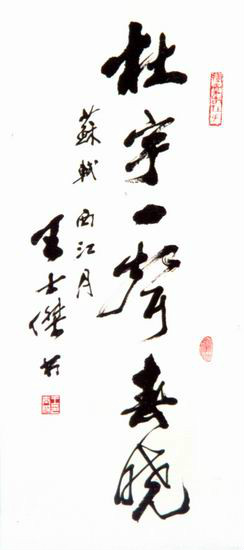 杜宇一聲春曉
蘇軾 西江月
王士傑书